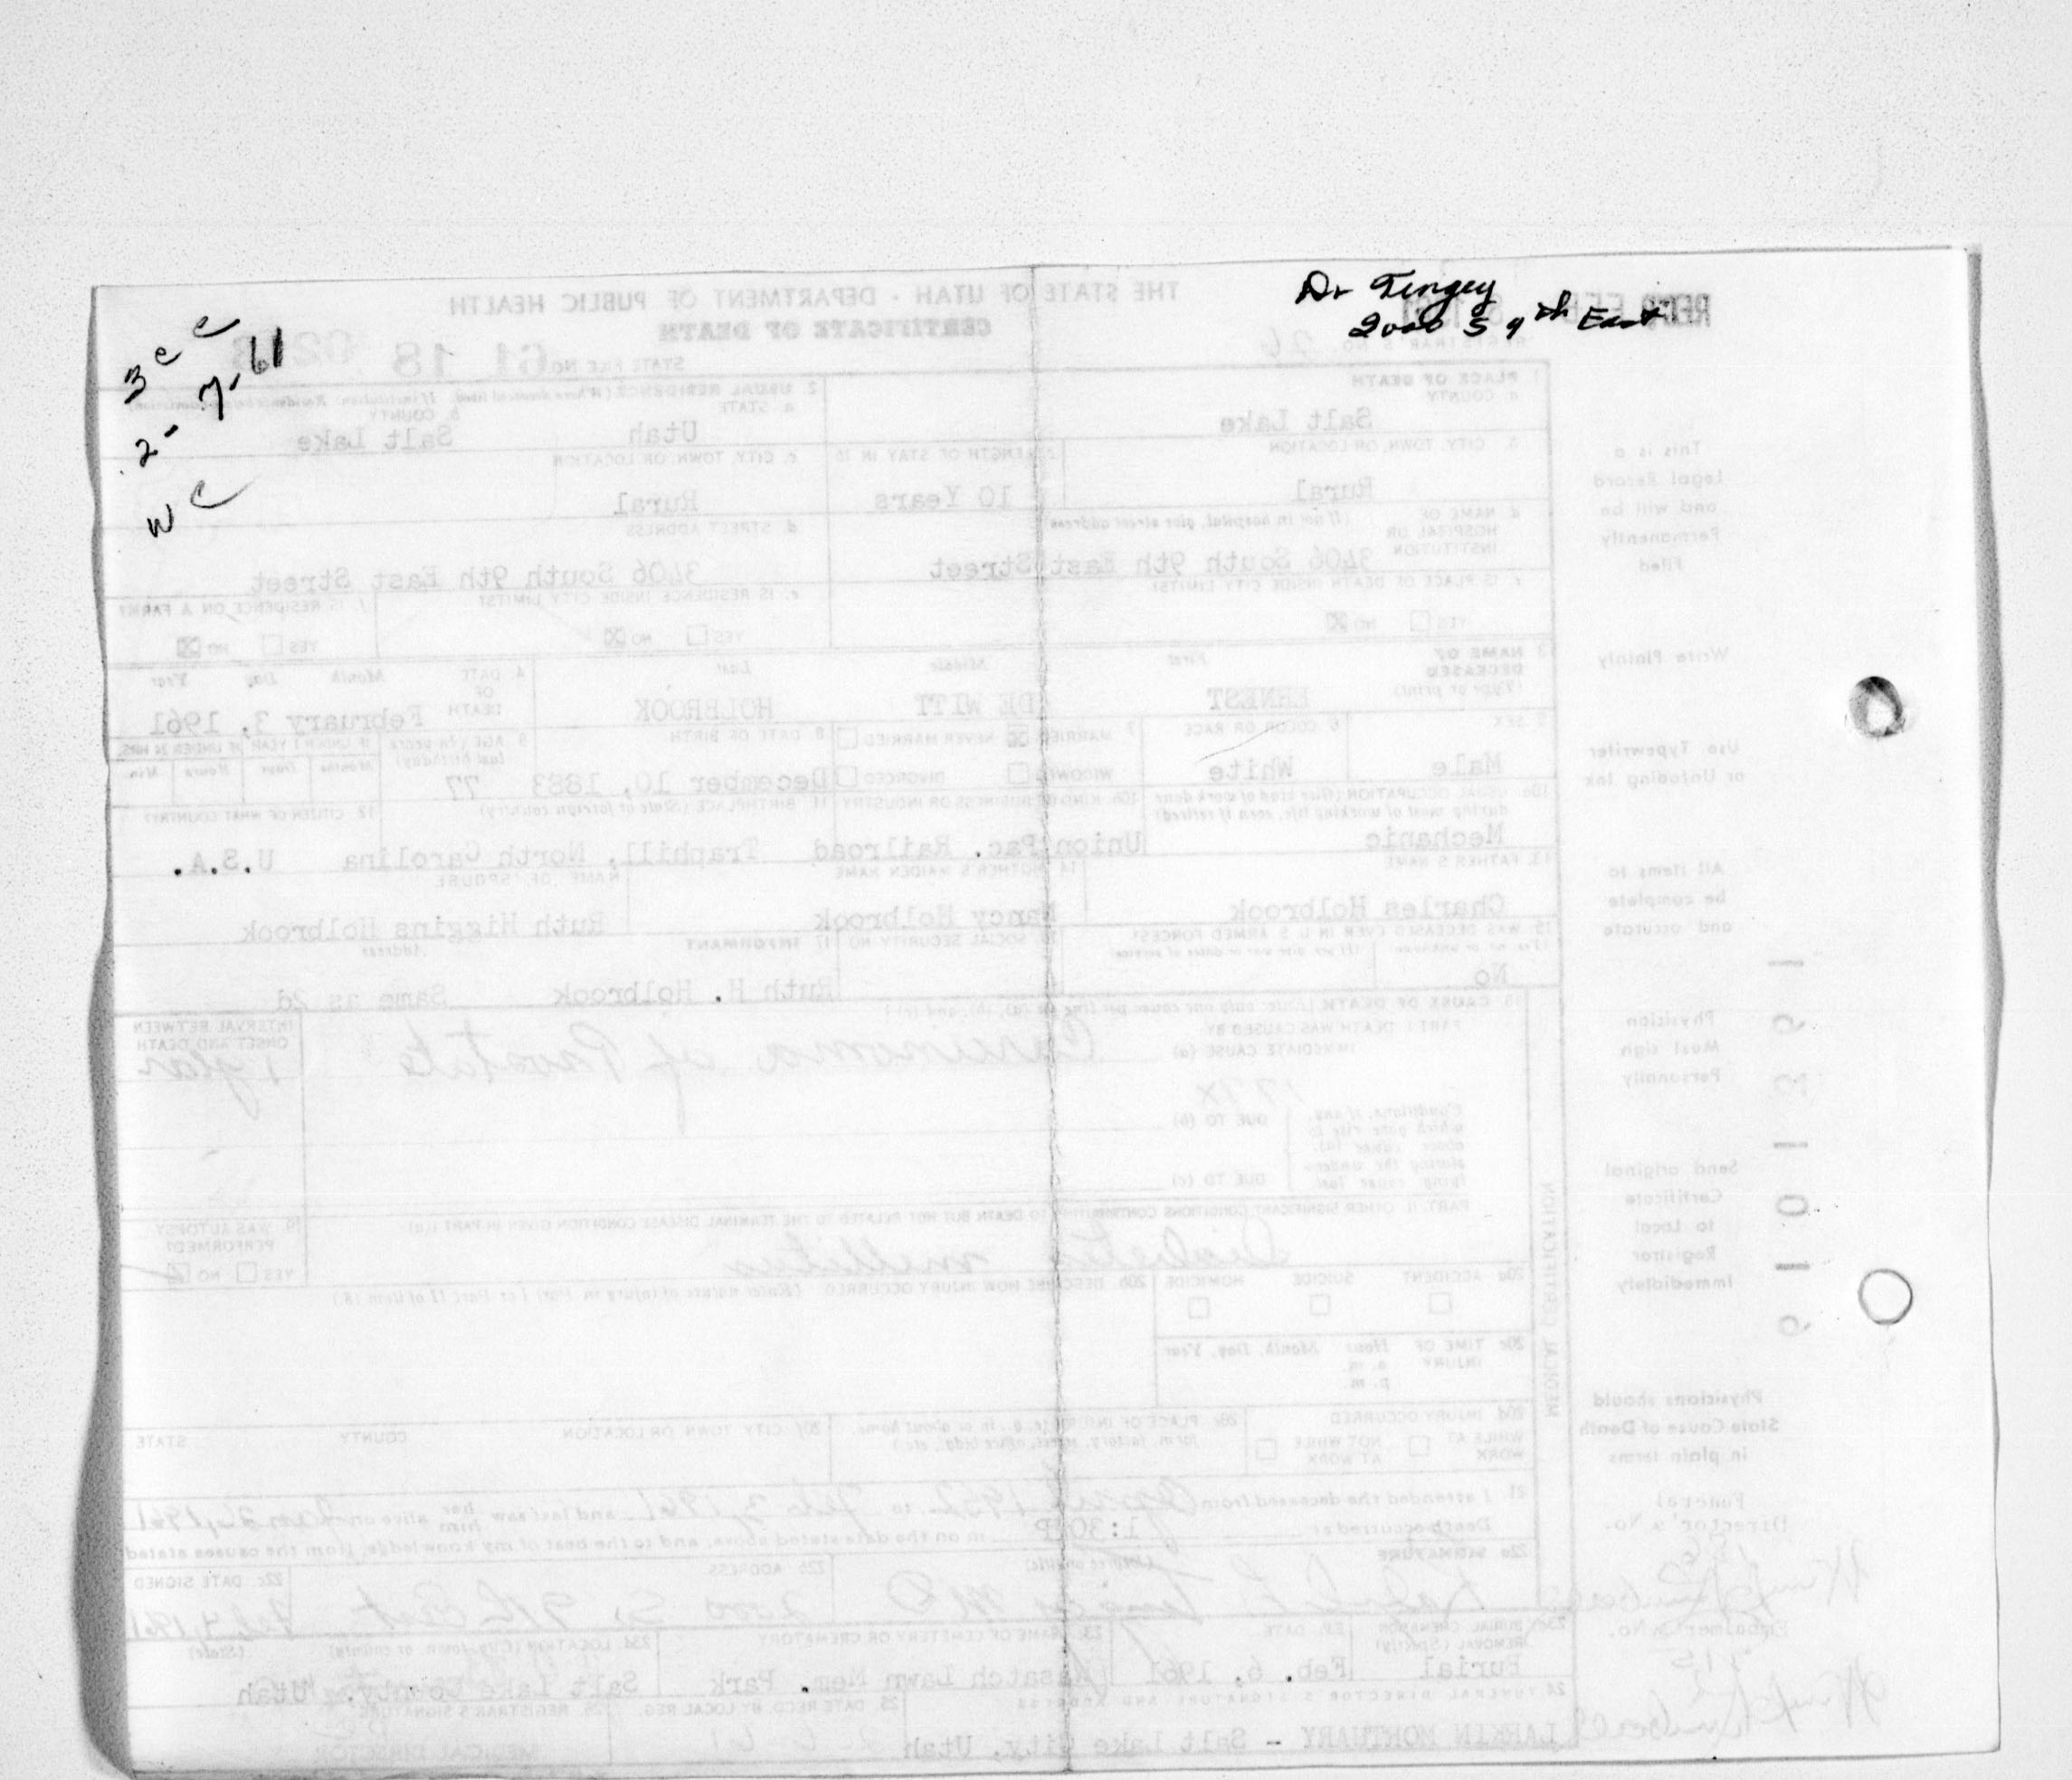 Dr Tingey
2000 S 9th East
3 c c
2-7-61
W C
THE STATE OF UTAH - DEPARTMENT OF PUBLIC HEALTH
CERTIFICATE OF DEATH
STATE FILE NO. 61 18
REGISTRAR'S NO. 26
1. PLACE OF DEATH
a. COUNTY
Salt Lake
2. USUAL RESIDENCE (Where deceased lived. If institution: Residence before admission)
a. STATE
Utah
b. COUNTY
Salt Lake
b. CITY, TOWN, OR LOCATION
Rural
c. LENGTH OF STAY IN 1b
10 Years
c. CITY, TOWN, OR LOCATION
Rural
d. NAME OF HOSPITAL OR INSTITUTION (If not in hospital, give street address)
3406 South 9th East Street
d. STREET ADDRESS
3406 South 9th East Street
e. IS PLACE OF DEATH INSIDE CITY LIMITS?
YES NO
e. IS RESIDENCE INSIDE CITY LIMITS?
YES NO
f. IS RESIDENCE ON A FARM?
YES NO
3. NAME OF DECEASED (Type or print)
First Middle Last
ERNEST DE WITT HOLBROOK
4. DATE OF DEATH
Month Day Year
February 3, 1961
5. SEX
Male
6. COLOR OR RACE
White
7. MARRIED NEVER MARRIED
WIDOWED DIVORCED
8. DATE OF BIRTH
December 10, 1883
9. AGE (In years last birthday)
77
IF UNDER 1 YEAR IF UNDER 24 HRS.
Months Days Hours Min.
10a. USUAL OCCUPATION (Give kind of work done during most of working life, even if retired)
Mechanic
10b. KIND OF BUSINESS OR INDUSTRY
Union Pac. Railroad
11. BIRTHPLACE (State or foreign country)
Traphill, North Carolina
12. CITIZEN OF WHAT COUNTRY?
U.S.A.
13. FATHER'S NAME
Charles Holbrook
14. MOTHER'S MAIDEN NAME
Nancy Holbrook
NAME OF SPOUSE
Ruth Higgins Holbrook
15. WAS DECEASED EVER IN U.S. ARMED FORCES?
(Yes, no, or unknown) (If yes, give war or dates of service)
No
16. SOCIAL SECURITY NO.
17. INFORMANT
Address
Ruth H. Holbrook Same as 2d
18. CAUSE OF DEATH [Enter only one cause per line for (a), (b), and (c).]
PART I. DEATH WAS CAUSED BY:
IMMEDIATE CAUSE (a)
Carcinoma of Prostate
INTERVAL BETWEEN ONSET AND DEATH
1 year
177X
Conditions, if any, which gave rise to above cause (a), stating the underlying cause last.
DUE TO (b)
DUE TO (c)
PART II. OTHER SIGNIFICANT CONDITIONS CONTRIBUTING TO DEATH BUT NOT RELATED TO THE TERMINAL DISEASE CONDITION GIVEN IN PART I(a)
Diabetes mellitus
19. WAS AUTOPSY PERFORMED?
YES NO
20a. ACCIDENT SUICIDE HOMICIDE
20b. DESCRIBE HOW INJURY OCCURRED. (Enter nature of injury in Part I or Part II of item 18.)
20c. TIME OF INJURY
Hour Month, Day, Year
a.m.
p.m.
20d. INJURY OCCURRED
WHILE AT WORK NOT WHILE AT WORK
20e. PLACE OF INJURY (e.g., in or about home, farm, factory, street, office bldg., etc.)
20f. CITY, TOWN, OR LOCATION COUNTY STATE
21. I attended the deceased from April 1952 to Feb 3, 1961 and last saw her him alive on Jan 26, 1961
Death occurred at 1:30 P m on the date stated above, and to the best of my knowledge, from the causes stated.
22a. SIGNATURE (Degree or title)
Tingey MD
22b. ADDRESS
2000 So 9th East
22c. DATE SIGNED
23a. BURIAL, CREMATION, REMOVAL (Specify)
Burial
23b. DATE
Feb. 6, 1961
23c. NAME OF CEMETERY OR CREMATORY
Wasatch Lawn Mem. Park
23d. LOCATION (City, town, or county) (State)
Salt Lake County, Utah
24. FUNERAL DIRECTOR'S SIGNATURE AND ADDRESS
LARKIN MORTUARY - Salt Lake City, Utah
25. DATE REC'D. BY LOCAL REG.
2-6-61
26. REGISTRAR'S SIGNATURE
MEDICAL DIRECTOR
MEDICAL CERTIFICATION
This is a
Legal Record
and will be
Permanently
Filed
Write Plainly
Use Typewriter
or Unfading Ink
All items to
be complete
and accurate
Physician
Must sign
Personally
Send original
Certificate
to Local
Registrar
Immediately
Physicians should
State Cause of Death
in plain terms
Funeral
Director's No.
Embalmer's No.